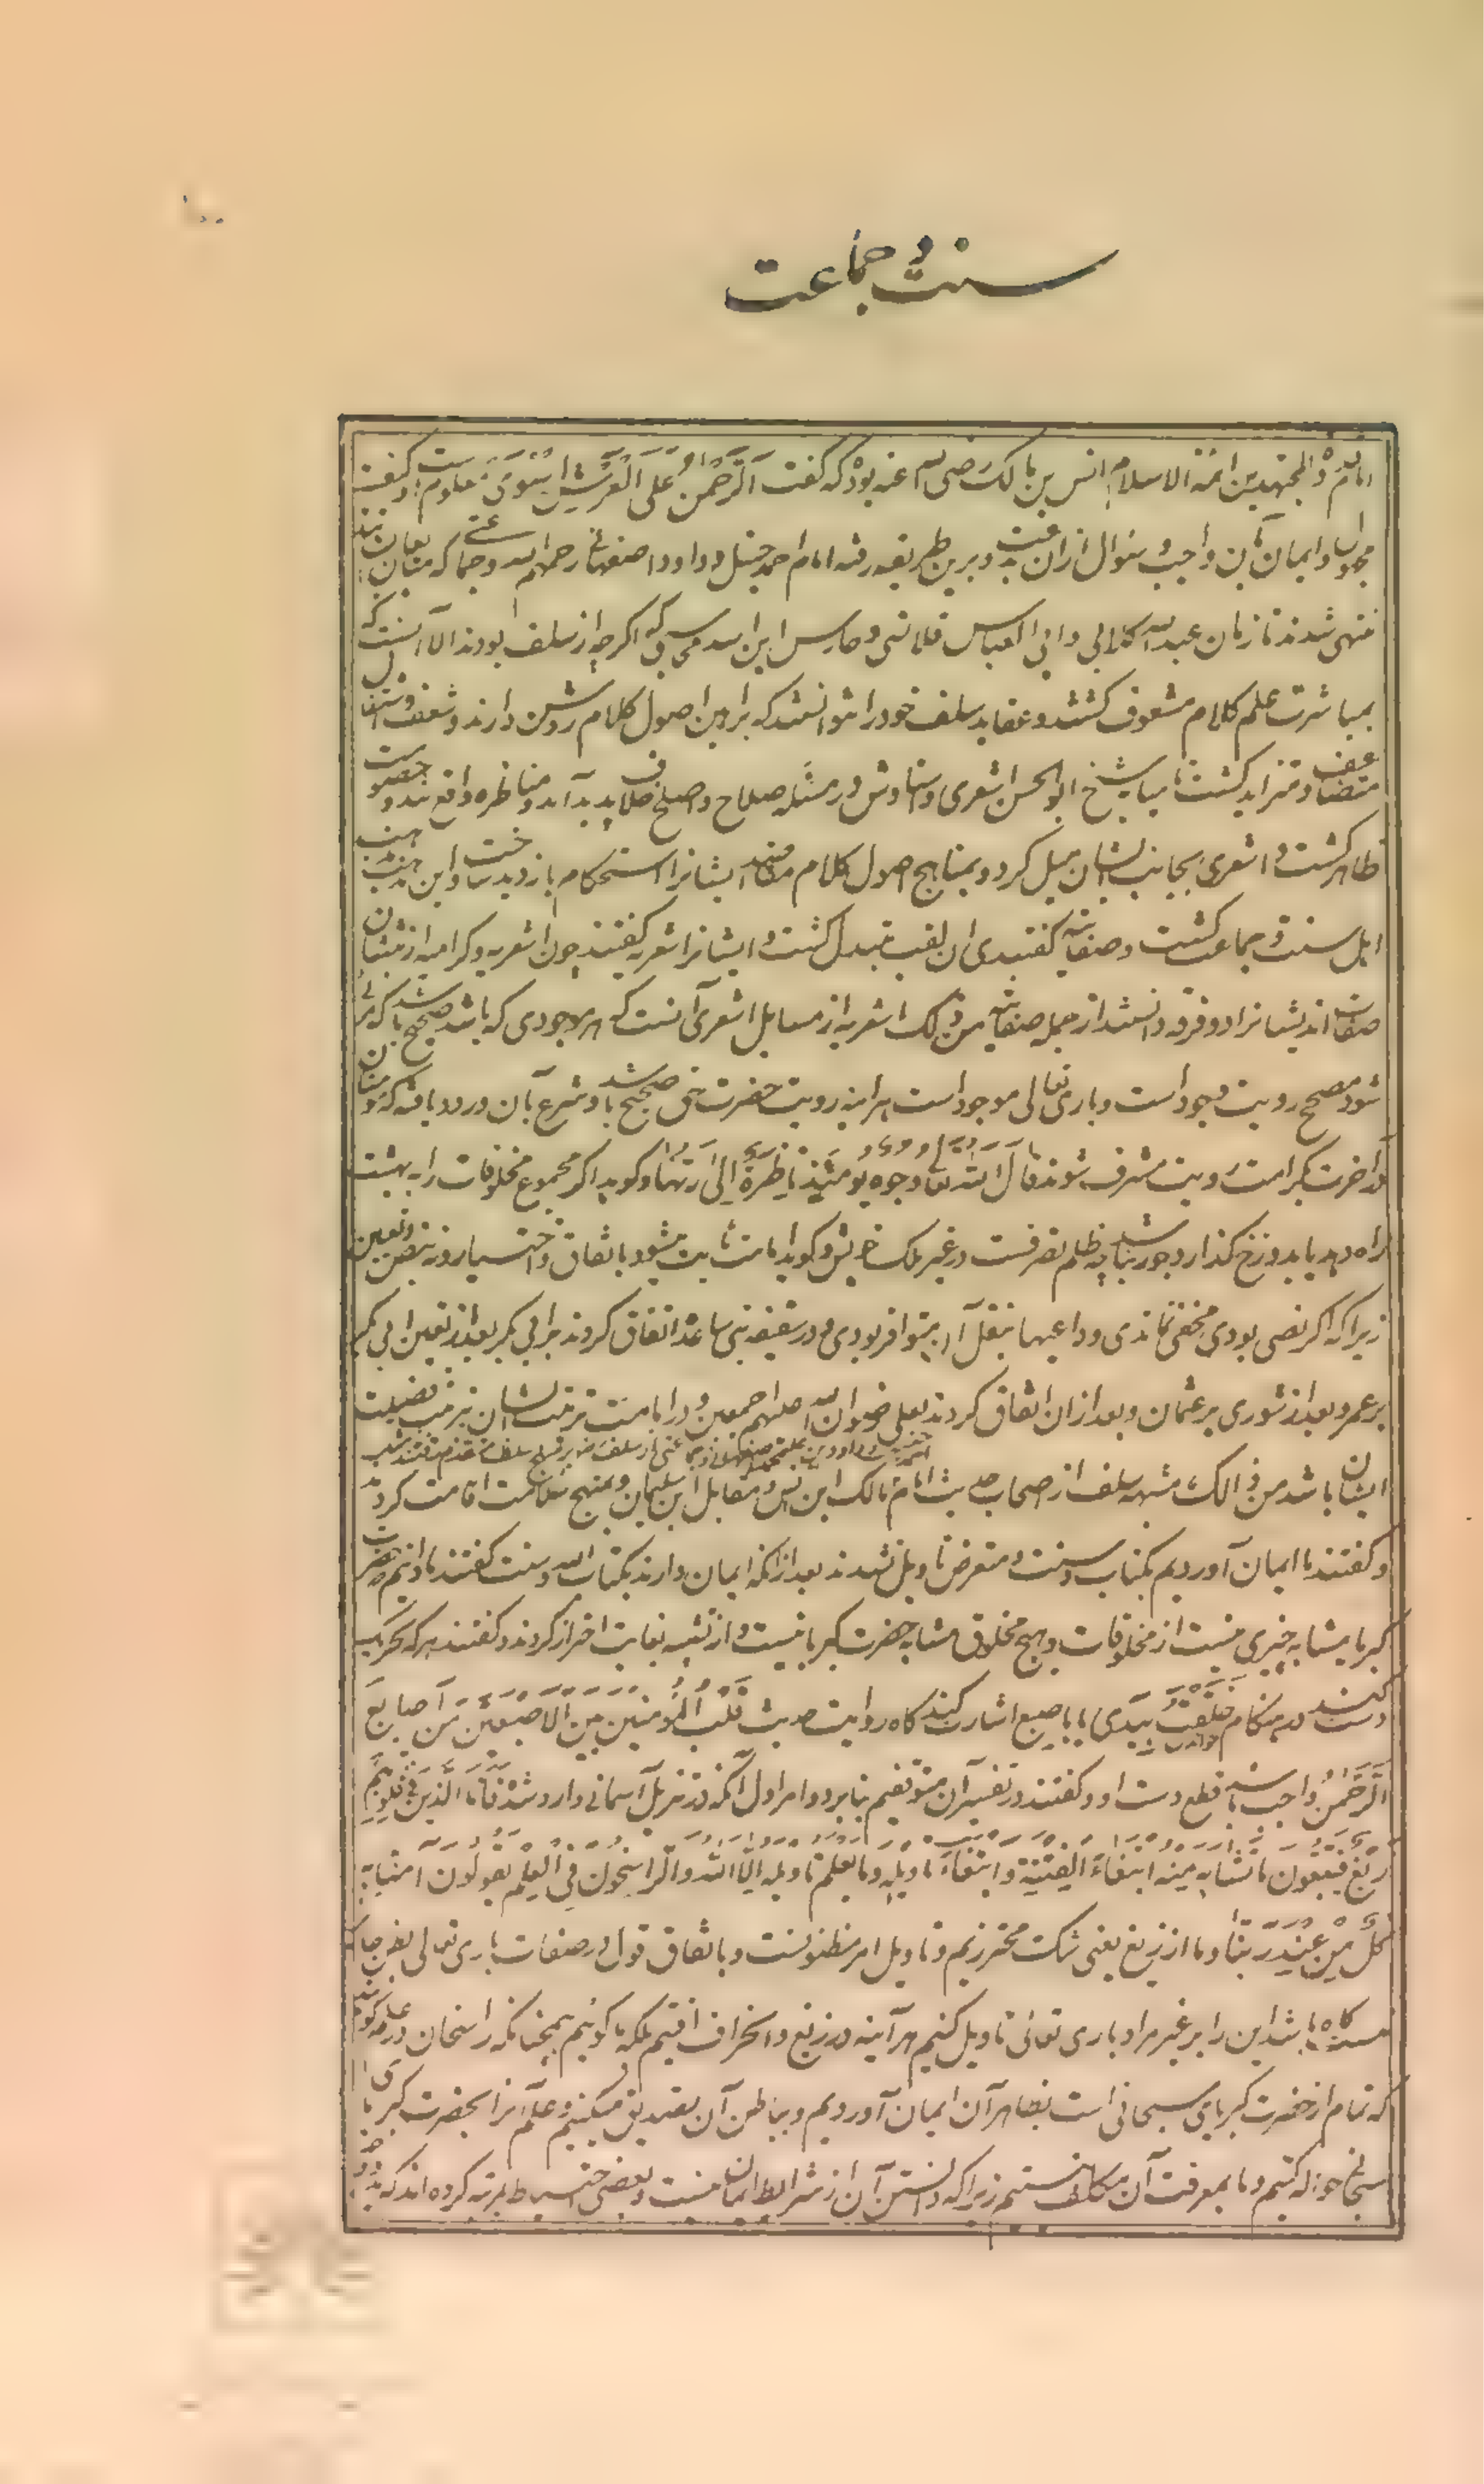 سنت و جماعت
امام المجتهدین ائمة الاسلام انس بن مالک رضی الله عنه بود که گفت الرَّحْمنُ عَلَی الْعَرْشِ اسْتَوی معلوم است و کیفیت
مجهول و ایمان بآن واجب و سئوال ازان بدعت و برین طریقه رفته امام احمد حنبل و داود اصفهانی رحمهم الله و جماعتی که متابعان
منتهی شدند تا زمان عبدالله کلابی و ابی العباس قلانسی و حارس ابن اسد محاسبی که اگرچه از سلف بودند الا آنست که
بمباشرت علم کلام مشعوف کشتند و عقاید سلف خود را نتوانستند که براهین اصول کلام روشن دارند و شعف و اشتغال
متضاعف و متزاید کشت تا میان شیخ ابوالحسن اشعری و استادش در مسئله صلاح و اصلح خلاف پدید آمد و مناظره واقع شد و خصومت
ظاهر کشت و اشعری بجانب ایشان میل کرد و بمناهج اصول کلام مقاصد ایشانرا استحکام بازدید ساخت و این مذهب مذهب
اهل سنت و جماعت کشت و صفاتیه گفتندی ان لقب متبدل کشت و ایشانرا اشعریه گفتند چون اشعریه و کرامیه از مثبتان
صفات اند ایشانرا دو فرقه دانستند از جمله صفاتیه من ذلک اشعریه از مسایل اشعری آنست که هر موجودی که باشد صحیح باشد که مرئی
شود مصحح رویت وجود است و باری تعالی موجود است هراینه رویت حضرت حق صحیح باشد و شرع بآن ورود یافته که مومنان
در اخرت بکرامت رویت مشرف شوند قال الله تعالی وُجُوهٌ یَوْمَئِذٍ ناظِرَةٌ اِلی رَبِّها و کوید اکر مجموع مخلوقات را به بهشت
راه دهد یا بدوزخ کذارد جور نباشد چه ظلم تصرفست در غیر ملک خویش و کوید امامت ثابت میشود باتفاق و اختیار و نه بنص و تعیین
زیرا که اکر نصی بودی مخفی نماندی و داعیها بنقل آن متوافر بودی و در سقیفه بنی ساعده اتفاق کردند بر ابی بکر بعد از تعیین ابی بکر
بر عمر و بعد از شوری بر عثمان و بعد ازان اتفاق کردند بعلی رضوان الله علیهم اجمعین و در امامت ترتیب ایشان بترتیب فضیلت
ایشان باشد من ذالک مشبهه سلف از صحاب حدیث امام مالک ابن انس و مقاتل ابن سلیمان و بمنهج سلامت اقامت کردند
و گفتند ما ایمان آوردیم بکتاب و سنت و متعرض تاویل نشدند بعد از انکه ایمان دارند بکتاب الله و سنت گفتند ما دانیم حضرت
کبریا مشابه چیزی نیست از مخلوقات و هیچ مخلوق مشابه حضرت کبریا نیست و از تشبیه بغایت احتراز کردند و گفتند هرکه تحریک
دست کند در هنکام خواندن خَلَقْتُ بِیَدَیَّ یا باصبع اشارت کند کاه روایت حدیث قَلْبُ الْمُؤْمِنینَ بَیْنَ الْاَصْبَعَیْنِ مِنْ اَصابِعِ
الرَّحْمنِ واجب باشد قطع دست او و گفتند در تفسیر آن متوقفیم بنابر دو امر اول آنکه در تنزیل آسمانی وارد شد فَاَمَّا الَّذینَ فی قُلُوبِهِمْ
زَیْغٌ فَیَتَّبِعُونَ ما تَشابَهَ مِنْهُ ابْتِغاءَ الْفِتْنَةِ وَ ابْتِغاءَ تَاْویلِهِ وَ ما یَعْلَمُ تَاْویلَهُ اِلَّا اللهُ وَ الرَّاسِخُونَ فِی الْعِلْمِ یَقُولُونَ آمَنَّا بِهِ
کُلٌّ مِنْ عِنْدِ رَبِّنا و ما از زیغ یعنی شک محترزیم و تاویل امر مظنونست و باتفاق قول در صفات باری تعالی بظن
کاه باشد این را بر غیر مراد باری تعالی تاویل کنیم هرآینه در زیغ و انحراف افتیم بلکه ما کوئیم همچنانکه راسخان در علم کویند
که تمام از حضرت کبریای سبحانی است بظاهر آن ایمان آوردیم و بباطن آن تصدیق میکنیم و علم آنرا بحضرت کبریای
سبحانی حواله کنیم و ما بمعرفت آن مکلف نیستیم زیرا که دانستن آن از شرایط ایمان نیست و بعضی احتیاط بمرتبه کرده اند که